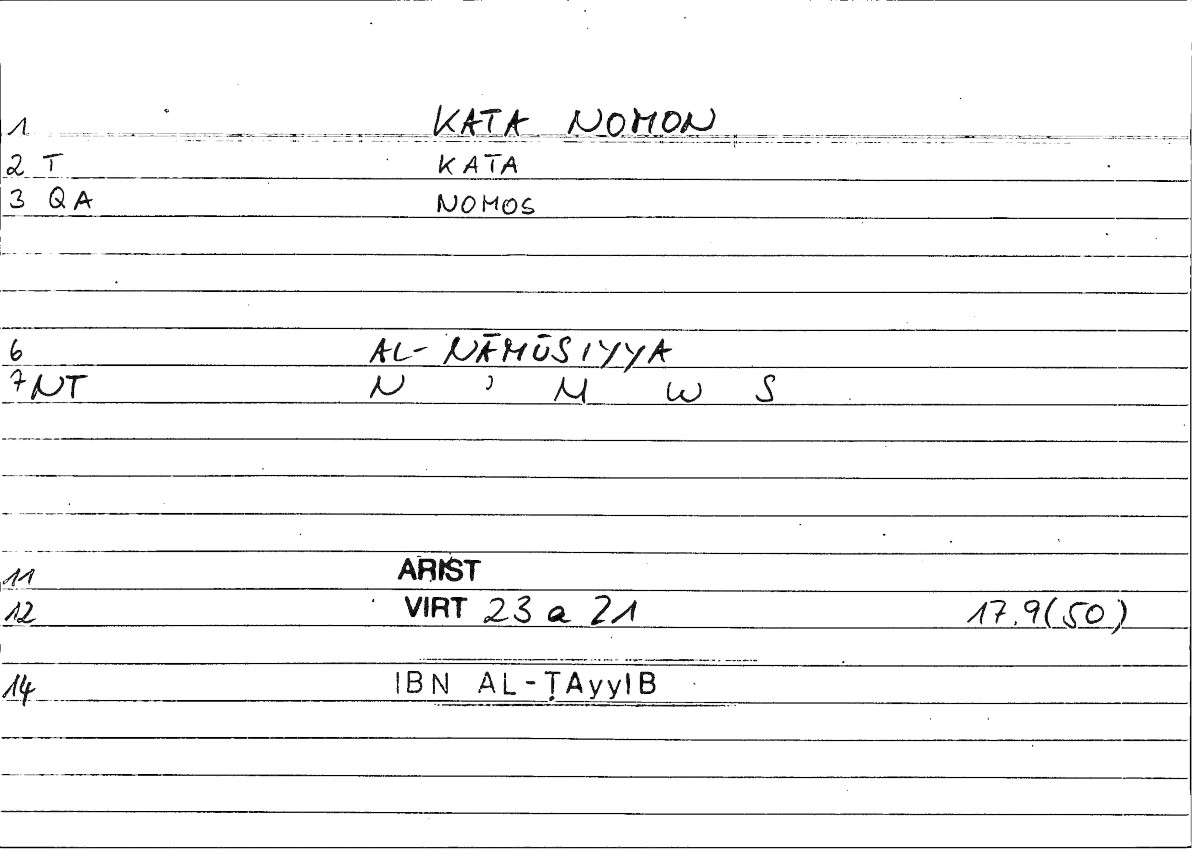 1 KATA NOMON
2 T KATA
3 QA NOMOS
6 AL-NĀMŪSIYYA
7 NT N ' M W S
11 ARIST
12 VIRT 23 a 21 17.9(50)
14 IBN AL-ṬAyyIB